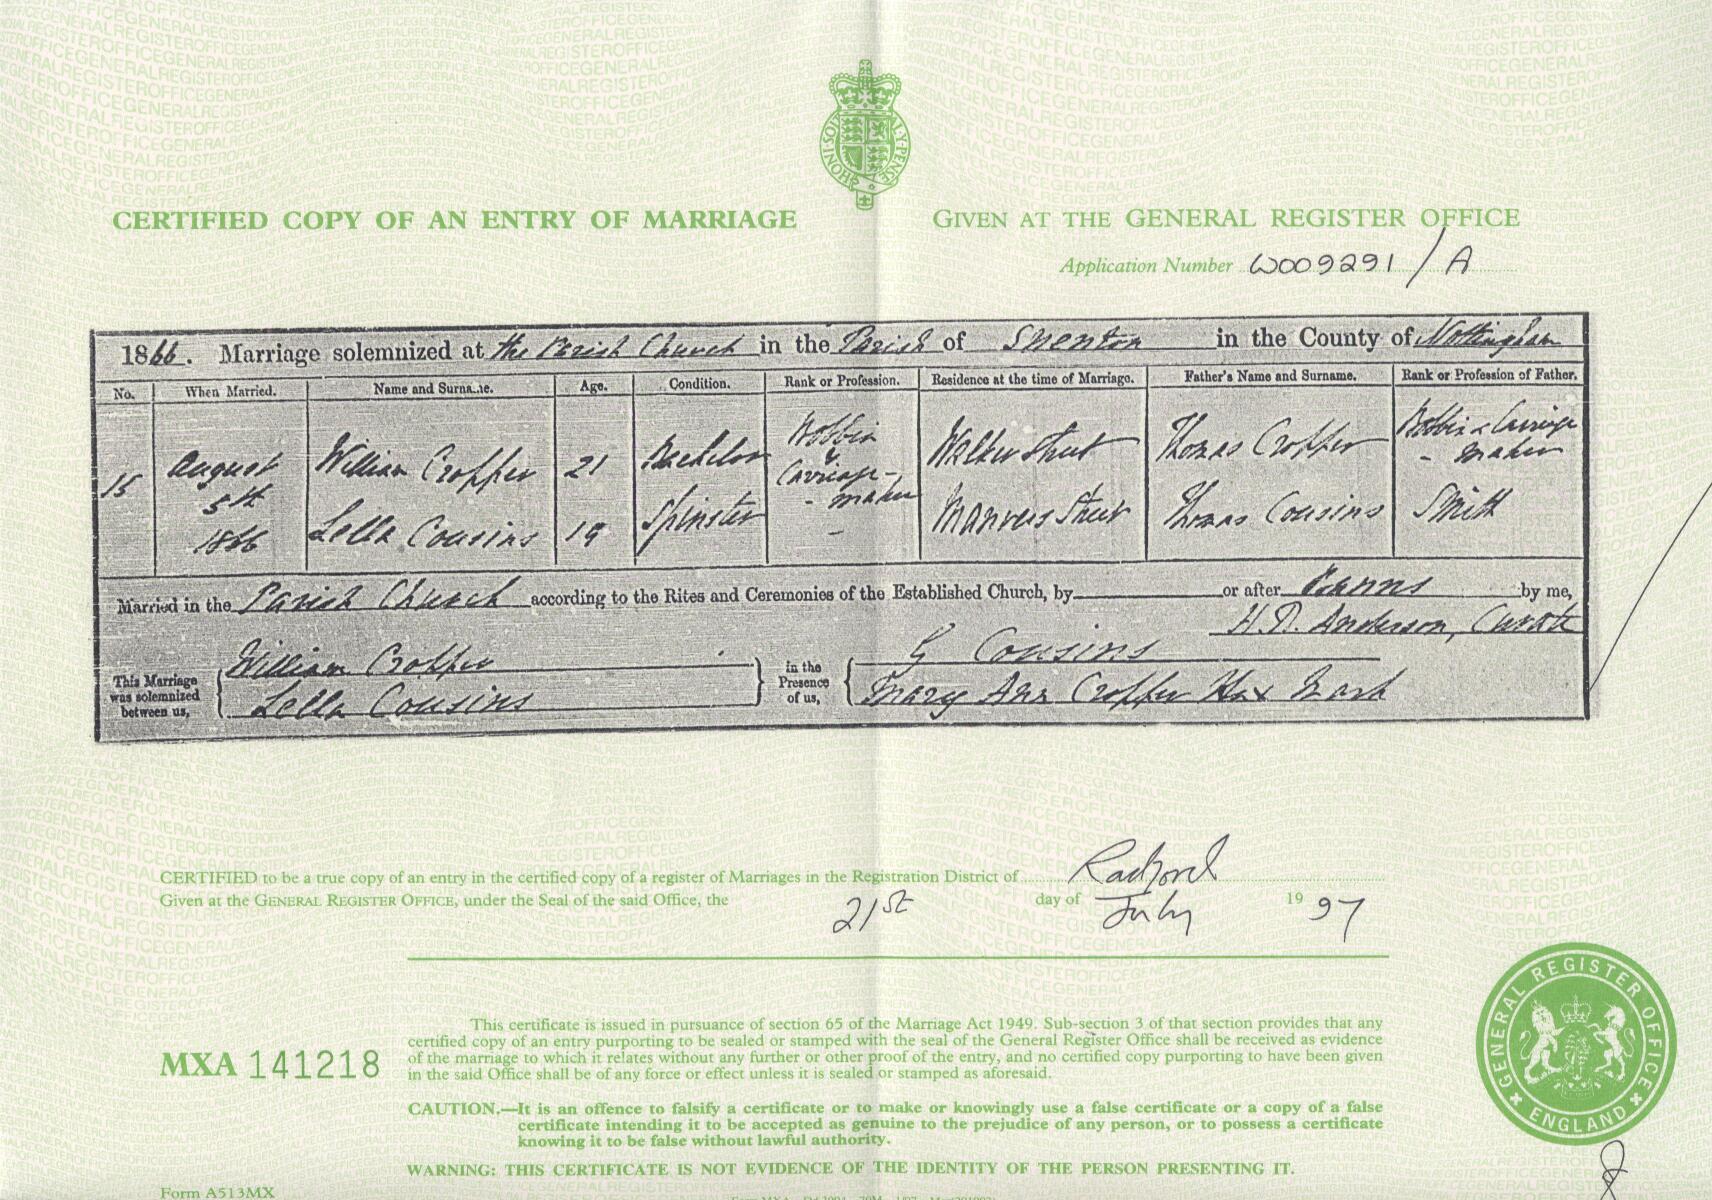 HONI·SOIT· ·Y·PENSE
CERTIFIED COPY OF AN ENTRY OF MARRIAGE
GIVEN AT THE GENERAL REGISTER OFFICE
Application Number W009291/A
1866. Marriage solemnized at the Parish Church in the Parish of Snenton in the County of Nottingham
No. When Married. Name and Surname. Age. Condition. Rank or Profession. Residence at the time of Marriage. Father's Name and Surname. Rank or Profession of Father.
15 August 5th 1866 William Cropper 21 Bachelor Bobbin & Carriage-maker Walker Street Thomas Cropper Bobbin & Carriage-maker
Lella Cousins 19 Spinster - Manvers Street Thomas Cousins Smith
Married in the Parish Church according to the Rites and Ceremonies of the Established Church, by or after Banns by me,
H.D. Anderson, Curate
This Marriage was solemnized between us, William Cropper Lella Cousins
in the Presence of us, G Cousins Mary Ann Cropper Her x Mark
CERTIFIED to be a true copy of an entry in the certified copy of a register of Marriages in the Registration District of Radford
Given at the GENERAL REGISTER OFFICE, under the Seal of the said Office, the 21st day of July 1997
MXA 141218
This certificate is issued in pursuance of section 65 of the Marriage Act 1949. Sub-section 3 of that section provides that any
certified copy of an entry purporting to be sealed or stamped with the seal of the General Register Office shall be received as evidence
of the marriage to which it relates without any further or other proof of the entry, and no certified copy purporting to have been given
in the said Office shall be of any force or effect unless it is sealed or stamped as aforesaid.
CAUTION.—It is an offence to falsify a certificate or to make or knowingly use a false certificate or a copy of a false
certificate intending it to be accepted as genuine to the prejudice of any person, or to possess a certificate
knowing it to be false without lawful authority.
WARNING: THIS CERTIFICATE IS NOT EVIDENCE OF THE IDENTITY OF THE PERSON PRESENTING IT.
GENERAL REGISTER OFFICE
ENGLAND
Form A513MX